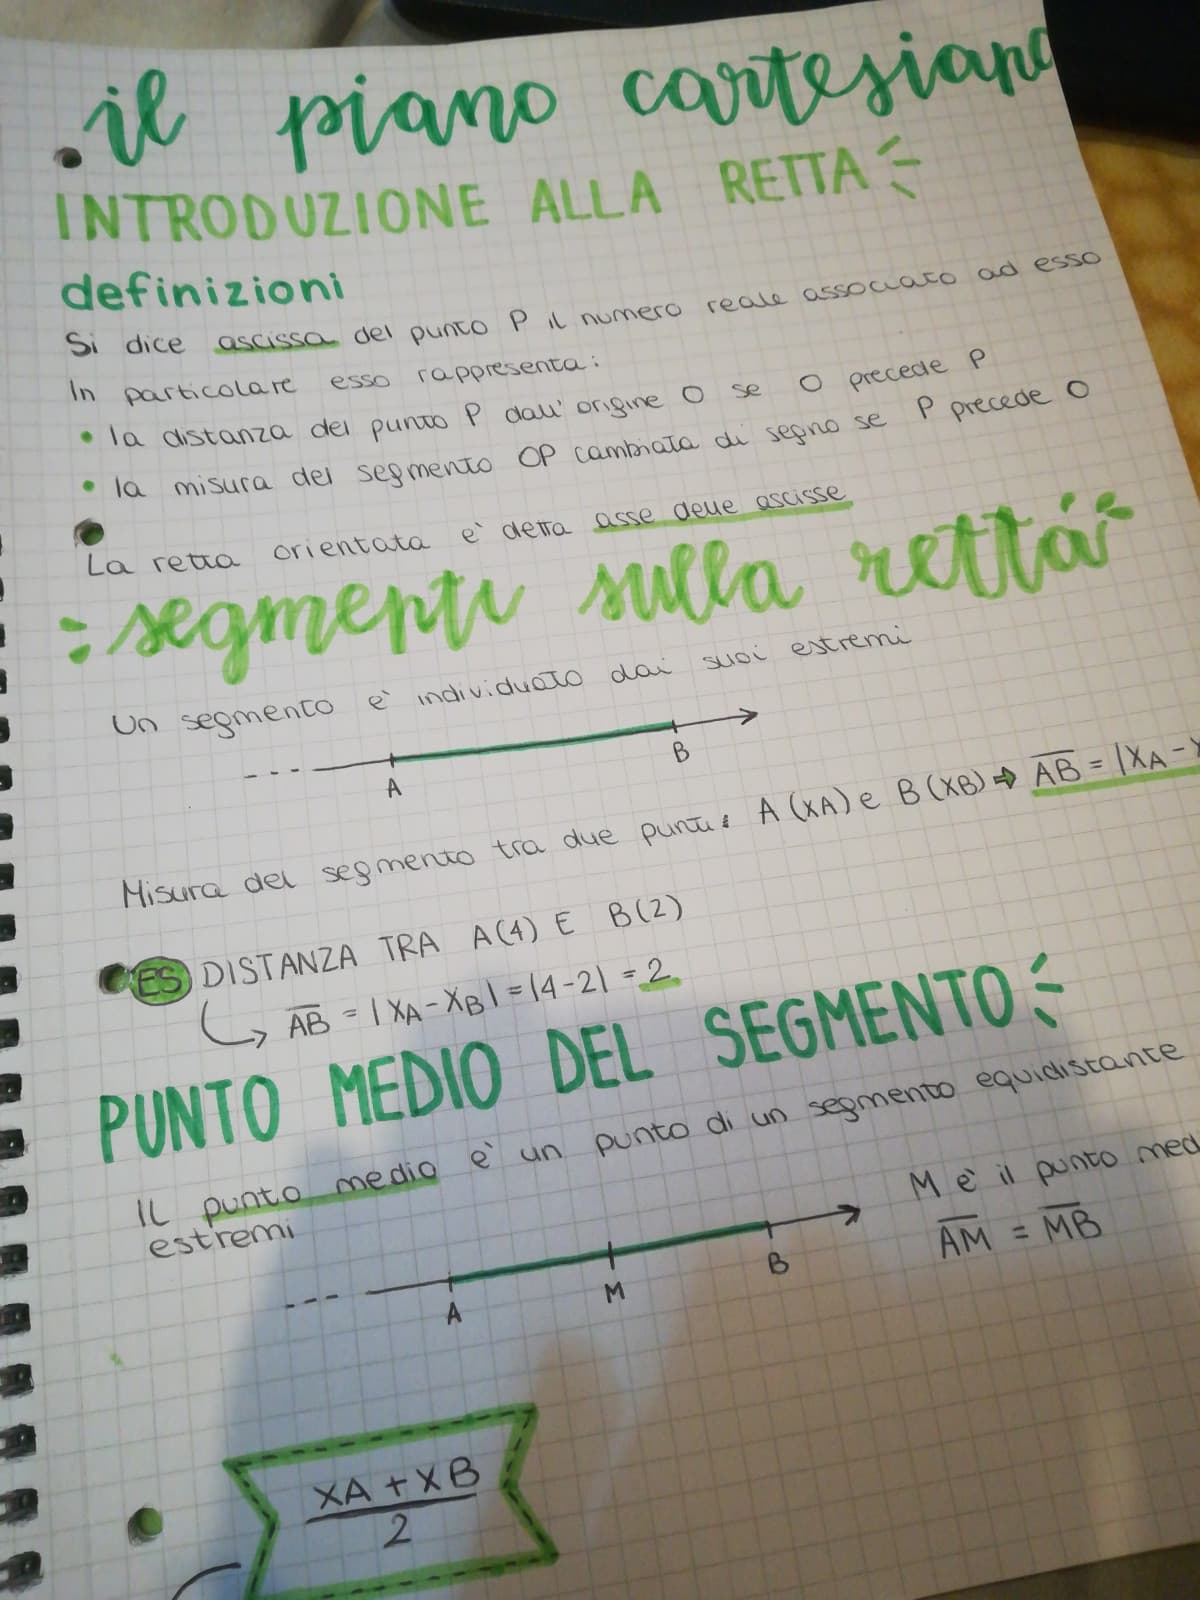 il piano cartesiano
INTRODUZIONE ALLA RETTA
definizioni
Si dice ascissa del punto P il numero reale associato ad esso
In particolare esso rappresenta:
• la distanza del punto P dall'origine O se O precede P
• la misura del segmento OP cambiata di segno se P precede O
La retta orientata è detta asse delle ascisse
segmenti sulla retta
Un segmento è individuato dai suoi estremi
A B
Misura del segmento tra due punti: A(XA) e B(XB) ⇒ A̅B̅ = |XA - X
ES DISTANZA TRA A(4) E B(2)
A̅B̅ = |XA - XB| = |4-2| = 2
PUNTO MEDIO DEL SEGMENTO
Il punto medio è un punto di un segmento equidistante
estremi
M è il punto med
A̅M̅ = M̅B̅
A M B
XA + XB
2